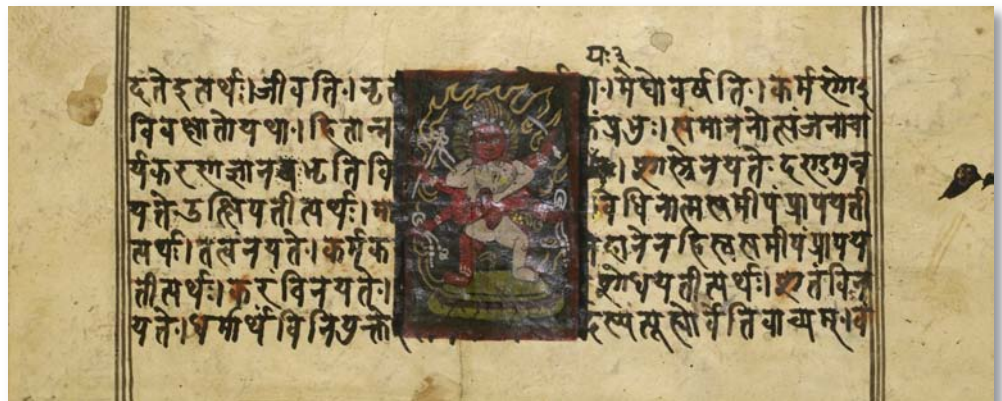 यः३
दते इत्यर्थः।जीवति।नृत ाः।मेघो वर्षति।कर्मणोऽ
विवक्षातो यथा।हितान्न प्रभुः।संमाननोत्संजनाचा
र्यकरणज्ञानभृतिवि शास्त्रे नयते दण्डमुन्न
यते उत्क्षिपतीत्यर्थः।मा विधिनात्मसमीपं प्रापयती
त्यर्थः।तत्व नयते।कर्मक दानेन हि स्वसमीपं प्रापय
तीत्यर्थः।करं विनयते। शोधयतीत्यर्थः।शतं विन
यते।धर्मार्थं विनियुङ्क्ते वाच्यम्।